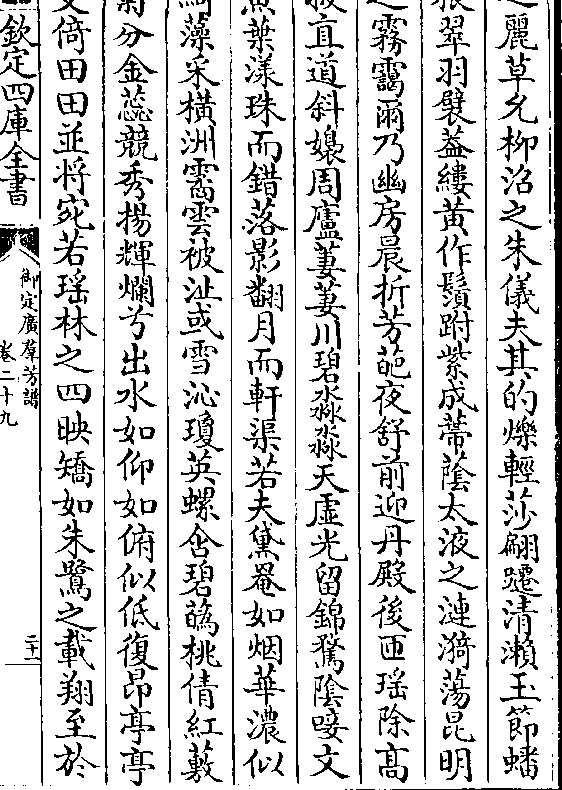 麗草允柳沼之朱儀夫其的爍輕莎翩躚清瀨玉節蟠
翠羽襞葢縷黄作鬚跗紫成蔕蔭太液之漣漪蕩昆明
霧靄爾乃幽房晨折芳葩夜舒前迎丹殿後匝瑶除高
直道斜嬝周廬萋萋川碧淼淼天虛光留錦鶩陰唼文
葉漾珠而錯落影翻月而軒渠若夫黛罨如烟華濃似
藻采橫洲靄雲被沚或雪沁瓊英螺含碧蘤桃倩紅藪
分金蕊競秀揚輝爛兮出水如仰如俯似低復昂亭亭
倚田田並將宛若瑶林之四映矯如朱鷺之載翔至於
欽定四庫全書
御定廣羣芳譜
卷二十九
二十一